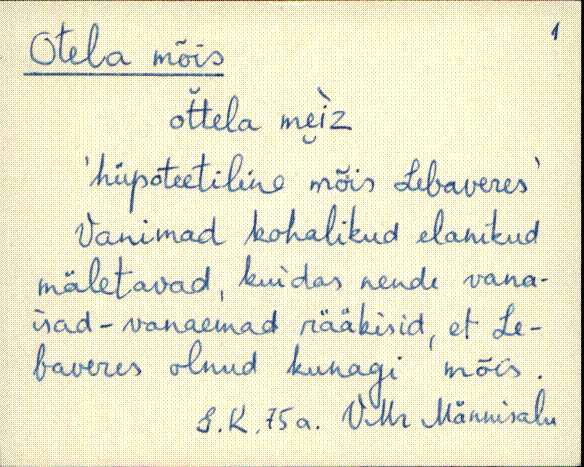 1
Otela mõis
oť̆tela mei̯z
'hüpoteetiline mõis Lebaveres'
Vanimad kohalikud elanikud
mäletavad, kuidas nende vana-
isad-vanaemad rääkisid, et Le-
baveres olnud kunagi mõis.
S.K.75a. VMr Männisalu